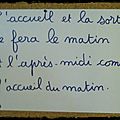 l'accueil et la sort
e fera le matin
t l'après-midi com
l'accueil du matin.